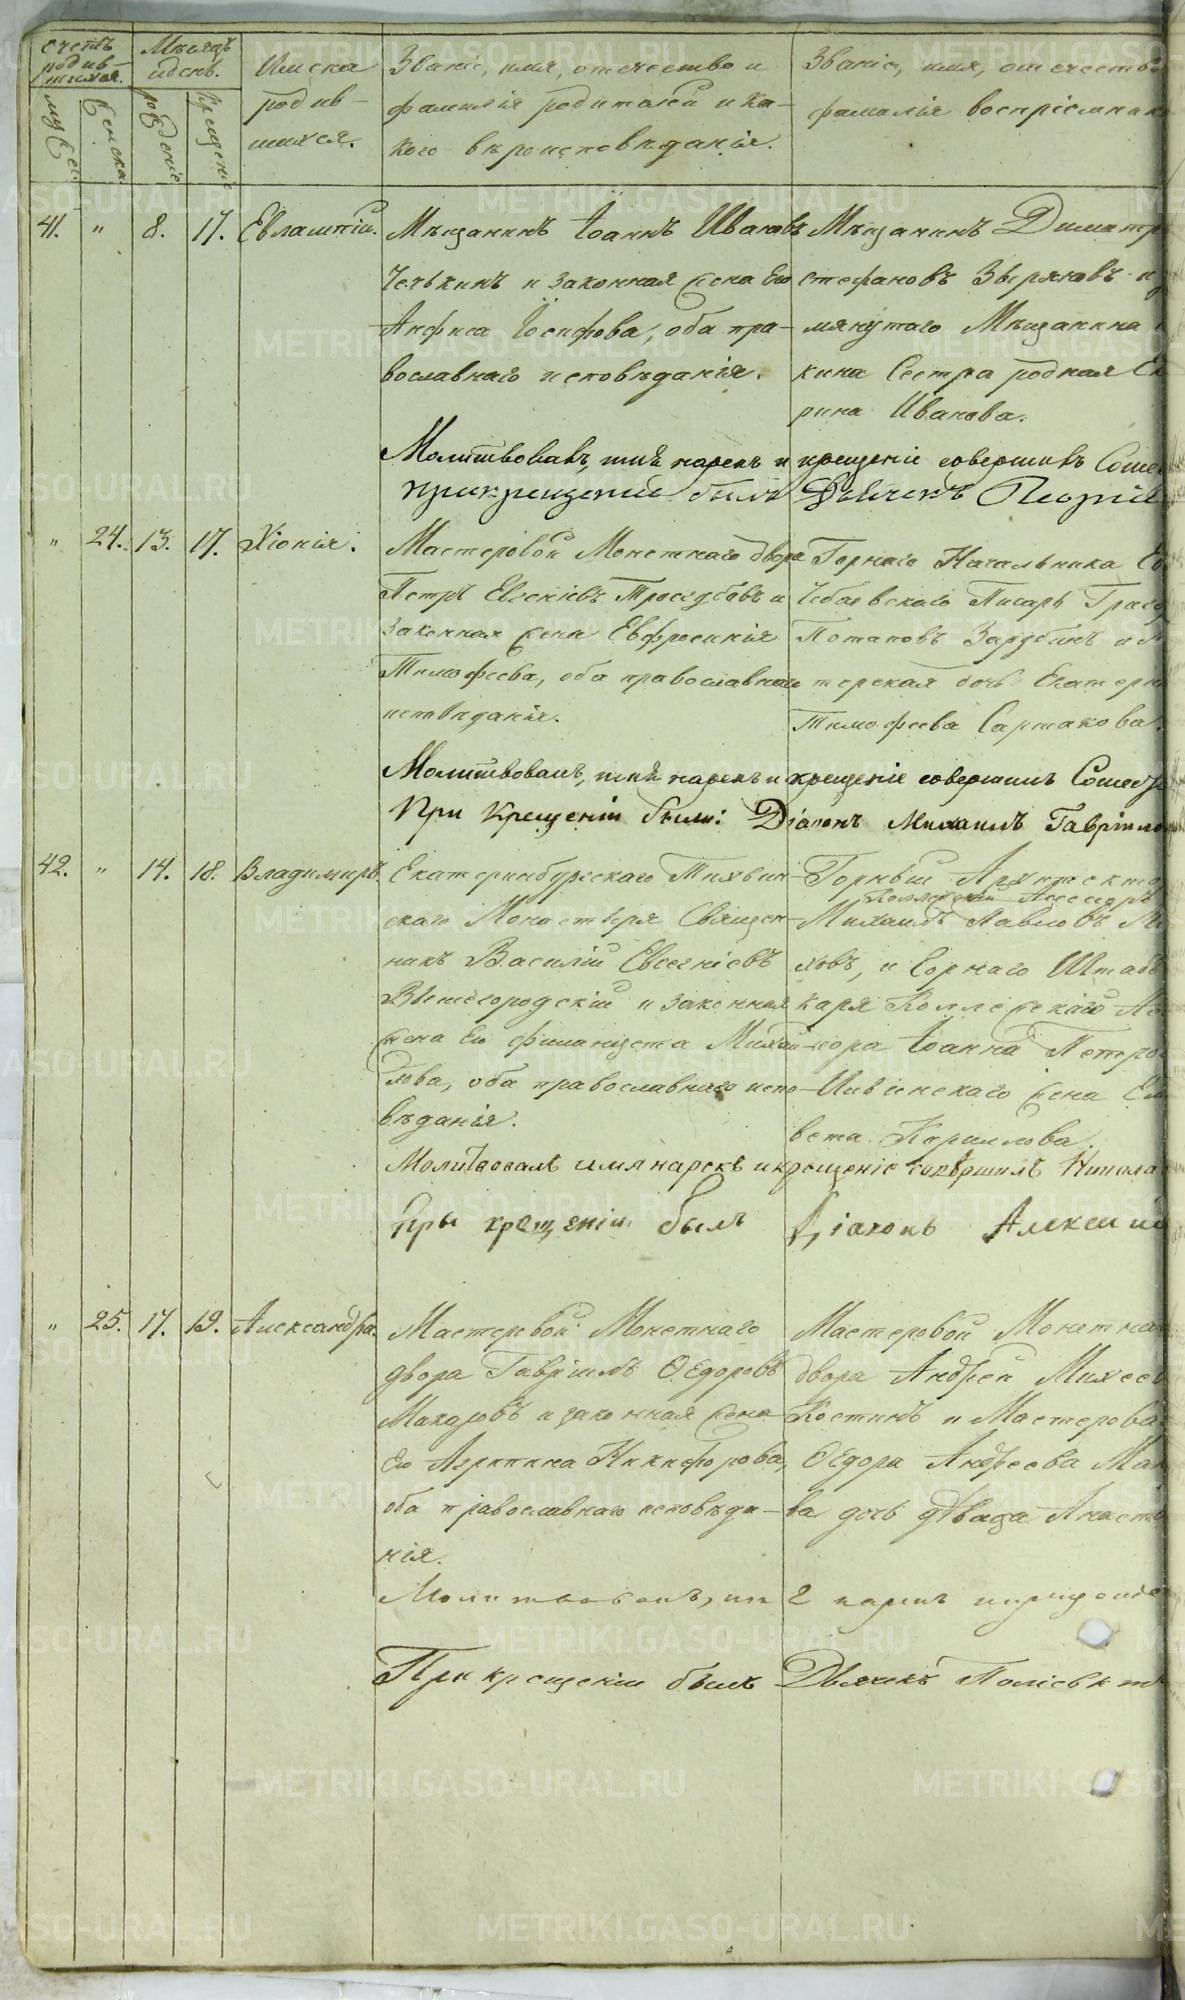 Счетъ родившихся.
Мѣсяцъ и день.
Имена родившихся.
Званіе, имя, отечество и фамилія родителей и какого вѣроисповѣданія.
Званіе, имя, отечество
фамилія воспріемник
мужеск.
женска.
рожденіе
крещеніе
41. " 8. 17. Евлампій.
Мѣщанинъ Іоаннъ Ивановъ
законная жена Его
Анфиса Іосифова, оба пра-
вославнаго исповѣданія.
Мѣщанинъ Димитр
Стефановъ Зыряновъ и
мянутаго Мѣщанина
кина Сестра родная Ек
рина Иванова.
Молитвовалъ, имя нарекъ и крещеніе совершилъ
При крещеніи былъ Дьячекъ Георгій
" 24. 13. 17. Хіонія.
Мастеровой Монетнаго двора
Петръ и
законная жена Евфросинія
Тимофеева, оба православнаго
исповѣданія.
Горнаго Начальника
Писарь
Потаповъ Зарубинъ и
терская дочь Екатери
Тимофеева Сартакова.
Молитвовалъ, имя нарекъ и крещеніе совершилъ
При Крещеніи были: Діаконъ Михаилъ Гавріило
42. " 14. 18. Владимиръ.
Екатеринбургскаго Тихвин-
скаго Монастыря Священ-
никъ Василій Евгеніевъ
Вышегородскій и законная
жена Его Филицета Михай-
лова, оба православнаго испо-
вѣданія.
Горный Архитекто
Коллежскій Ассесоръ
Михаилъ Павловъ М
ховъ, и Горнаго Штабъ
каря Коллежскаго Ас
сора Іоанна Петров
жена Ели
вета Кирилова.
Молитвовалъ имя нарекъ и крещеніе совершилъ Никола
При крещеніи былъ Діаконъ Алексій
" 25. 17. 19. Александра.
Мастеровой Монетнаго
двора Гавріилъ Ѳедоровъ
Макаровъ и законная жена
Его Агрипина Никифорова,
оба православнаго исповѣда-
нія.
Мастеровой Монетна
двора Андрей Михеев
Костинъ и Мастерова
Ѳедора Андреева Мак
ва дочь дѣвица Анаст
Молитвовалъ,
При крещеніи былъ Дьячекъ
METRIKI.GASO-URAL.RU